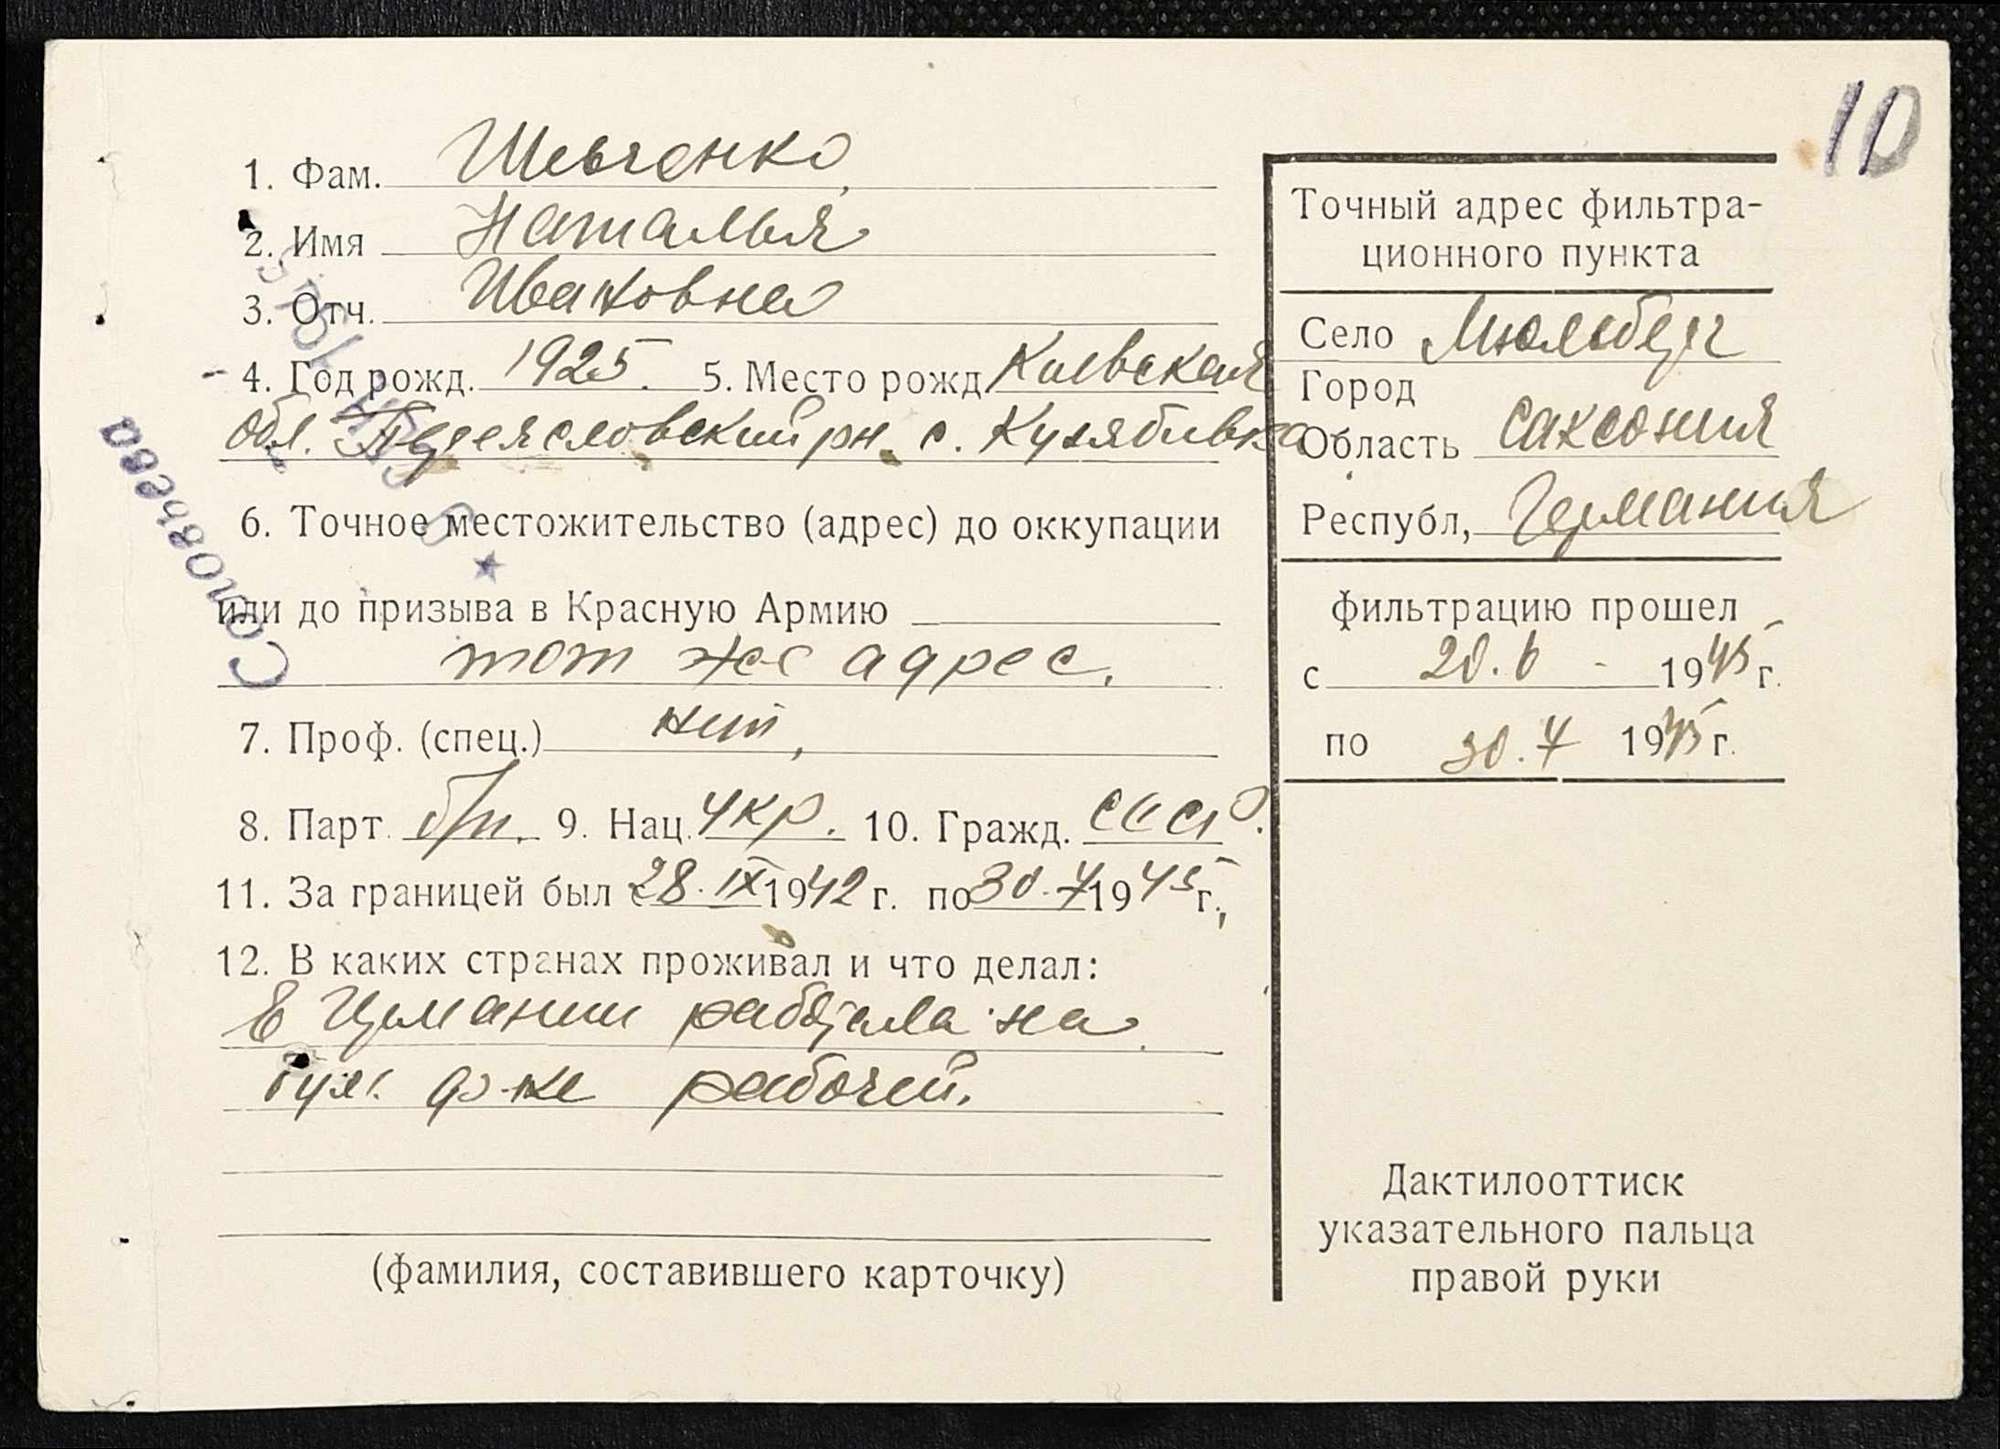 10
1. Фам. Шевченко
2. Имя Наталья
3. Отч. Ивановна
4. Год рожд. 1925. 5. Место рожд Киевская
обл. Переясловский рн. с. Кузябивка
6. Точное местожительство (адрес) до оккупации
или до призыва в Красную Армию
тот же адрес.
7. Проф. (спец.) нет,
8. Парт. б/п. 9. Нац. Укр. 10. Гражд. СССР.
11. За границей был с 28.IX 1942 г. по 30.4 1945 г.,
12. В каких странах проживал и что делал:
В Германии работала на
рабочей.
(фамилия, составившего карточку)
Точный адрес фильтра-
ционного пункта
Село Мюльберг
Город
Область Саксония
Республ, Германия
фильтрацию прошел
с 20.6 - 1945 г.
по 30.7 1945 г.
Дактилооттиск
указательного пальца
правой руки
Соловьева